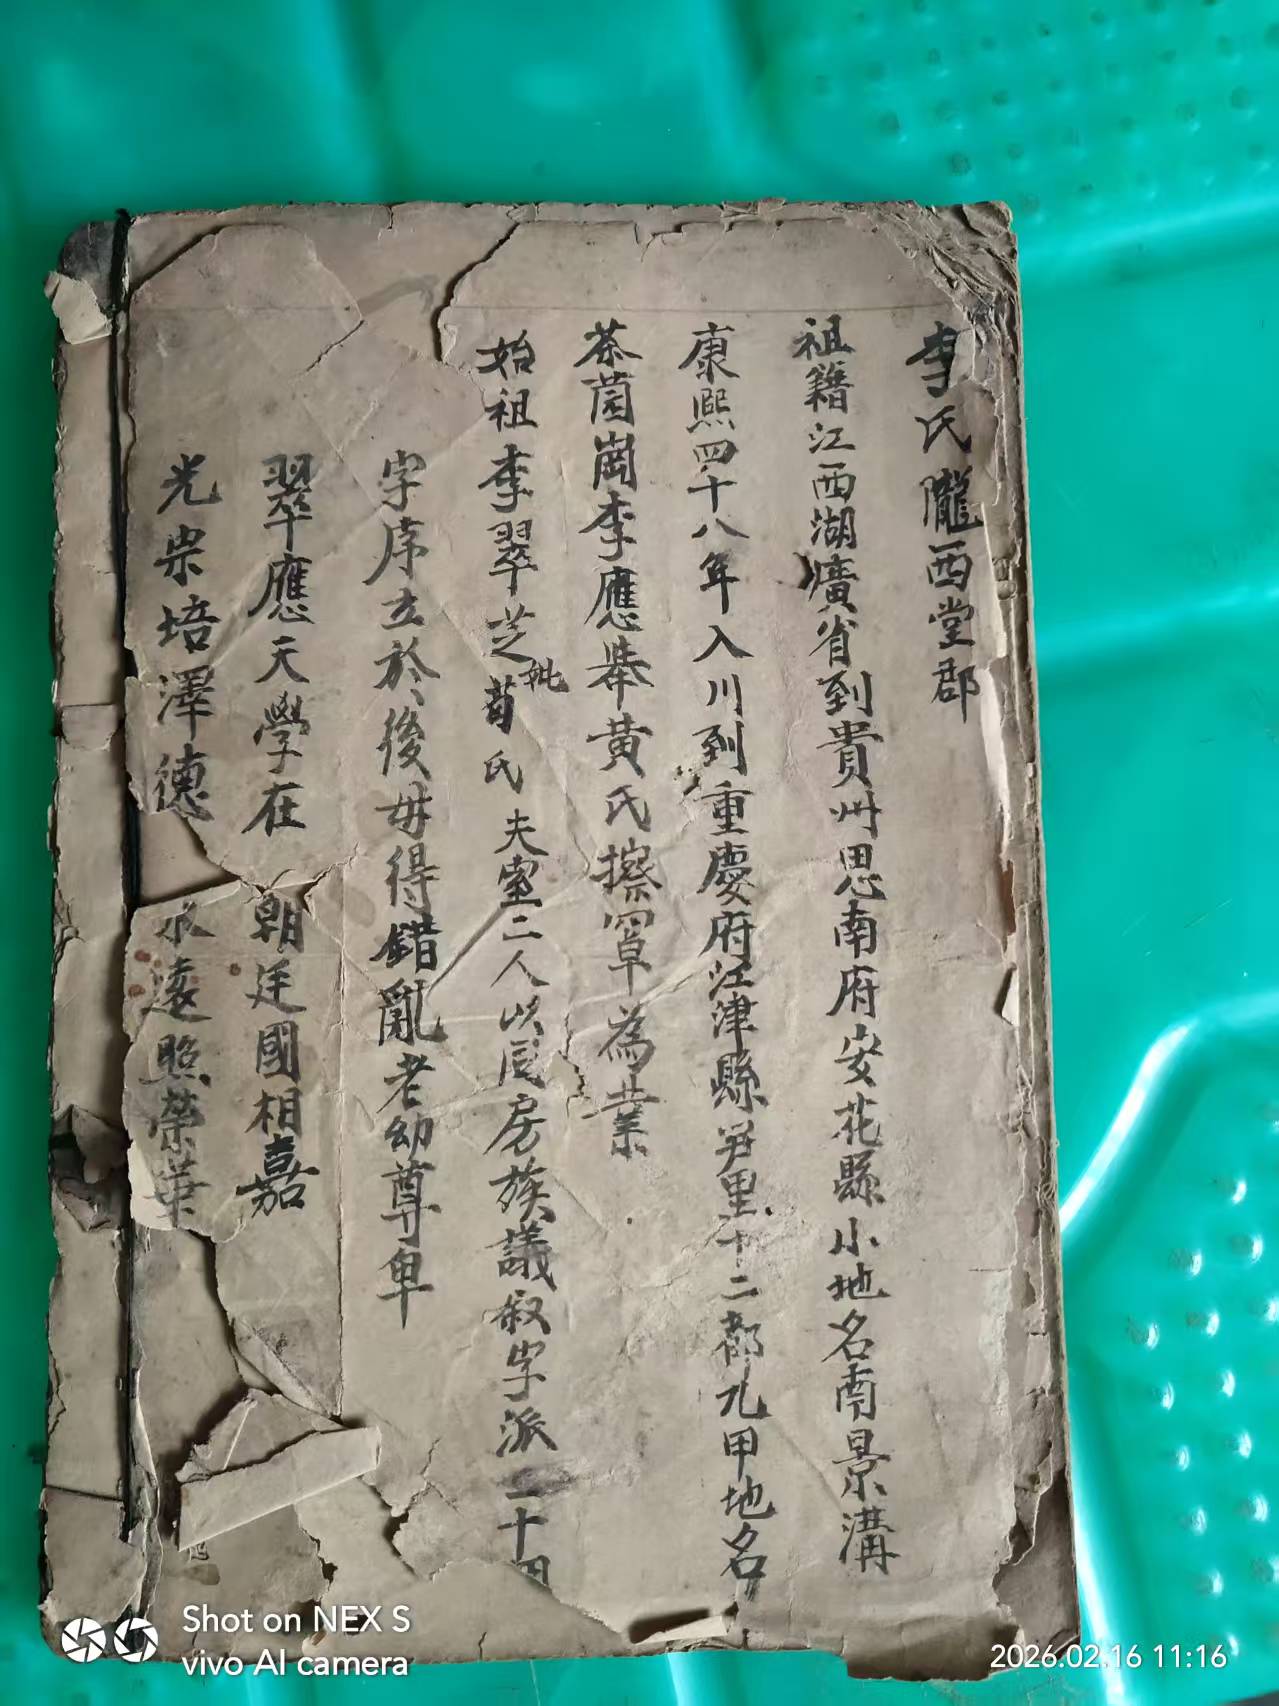 李氏隴西堂郡
祖籍江西湖廣省到貴州思南府安花縣小地名南景溝
康熙四十八年入川到重慶府江津縣笋里十二都九甲地名
茶園崗李應舉黄氏擦罩為業
始祖李翠芝妣苟氏夫室二人以同房族議叙字派二十四
字序立於後毋得錯亂老幼尊卑
翠應天學在 朝廷國相嘉
光宗培澤德 永遠照榮華
Shot on NEX S
vivo AI camera
2026.02.16 11:16